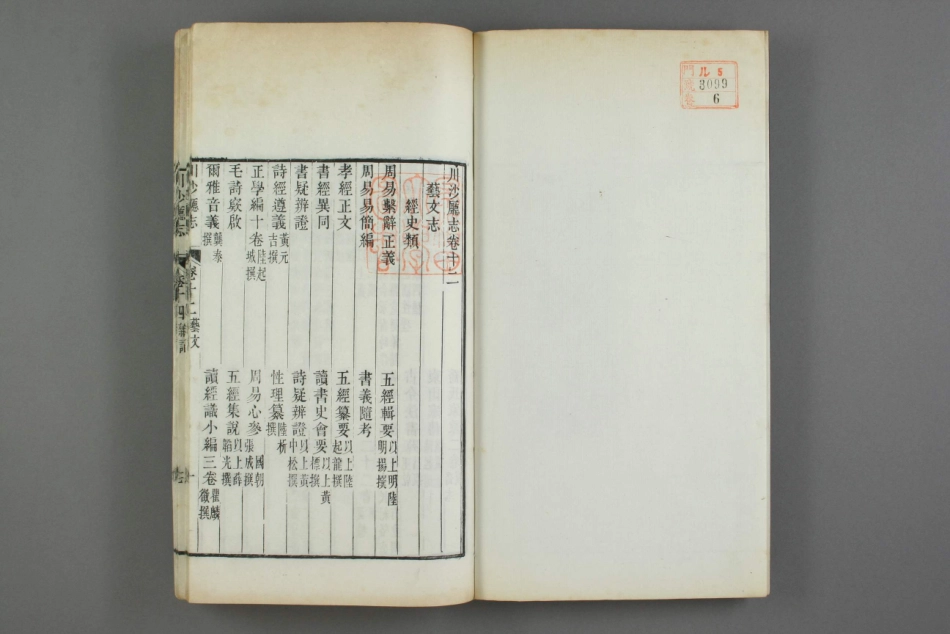 川沙廳志卷十二
藝文志
經史類
周易繫辭正義
五經輯要以上明陸明揚撰
周易易簡編
書義隨考
孝經正文
五經纂要以上陸起龍撰
書經異同
讀書史會要以上黃標撰
書疑辨證
詩疑辨證以上黃中松撰
詩經遵義黃元吉撰
性理纂陸撰
正學編十卷陸起城撰
周易心參國朝張成撰
毛詩啟
五經集說以上薛韜光撰
爾雅音義龔泰撰
讀經識小編三卷瞿麟徵撰
川沙廳志
卷十二藝文
一
ル5
3099
6
門